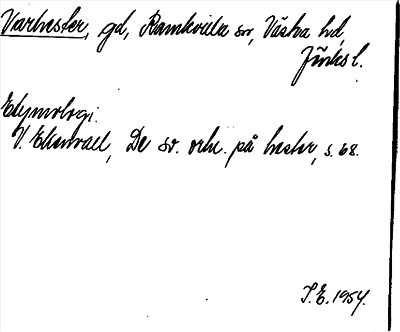 Varhester, gd, Ramkvilla sn, Västra hd,
Jönk. l.
Etymologi:
V. Ekenvall, De sv. ortn. på hester, s. 68.
I.E. 1954.